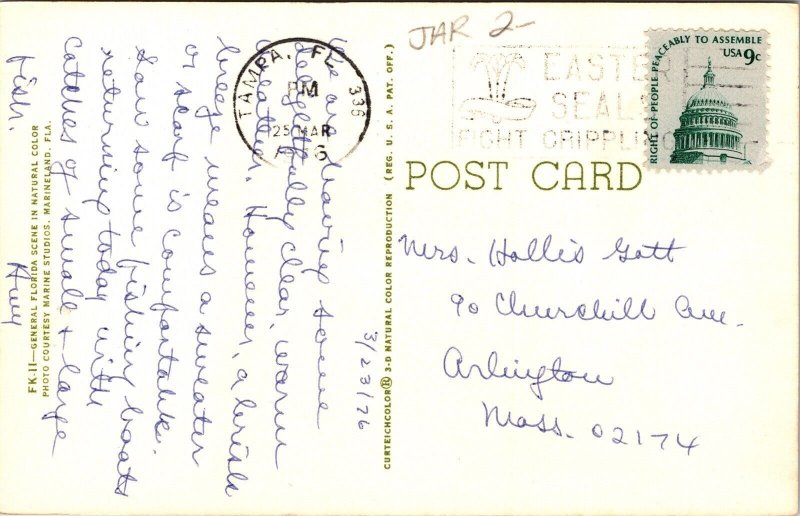 JAR 2-
TAMPA, FL 336
PM
25 MAR
EASTER
SEALS
FIGHT CRIPPLING
RIGHT OF PEOPLE PEACEABLY TO ASSEMBLE
USA 9c
POST CARD
Mrs. Hollis Gott
90 Churchill Ave.
Arlington
Mass. 02174
3/23/76
We are having some
delightfully clear, warm
weather. However, a brisk
breeze means a sweater
or scarf is comfortable.
Saw some fishing boats
returning today with
catches of small + large
fish.
FK-11—GENERAL FLORIDA SCENE IN NATURAL COLOR
PHOTO COURTESY MARINE STUDIOS, MARINELAND, FLA.
CURTEICHCOLOR® 3-D NATURAL COLOR REPRODUCTION (REG. U. S. A. PAT. OFF.)